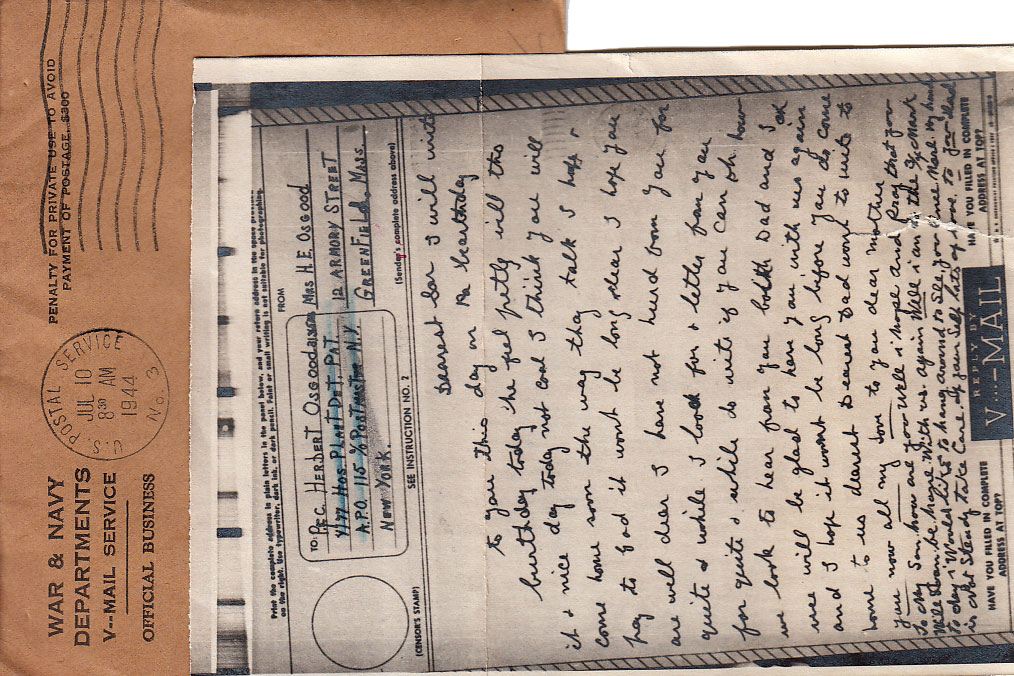 WAR & NAVY
DEPARTMENTS
V--MAIL SERVICE
OFFICIAL BUSINESS
U.S. POSTAL SERVICE
JUL 10
8 30 AM
1944
No. 3
PENALTY FOR PRIVATE USE TO AVOID
PAYMENT OF POSTAGE, $300
Print the complete address in plain letters in the panel below, and your return address in the space provided
on the right. Use typewriter, dark ink, or dark pencil. Faint or small writing is not suitable for photographing.
FROM
TO: PFC. HERBERT OSGOOD
1/77 HOS PLANT DET. PAT.
A.P.O. 115 % POSTMASTER N.Y.
NEW YORK.
MRS H.E. OSGOOD
12 ARMORY STREET
GREENFIELD, MASS.
(CENSOR'S STAMP)
SEE INSTRUCTION NO. 2
(Sender's complete address above)
Dearest Son I will write
to you this day on Pa bearthday
burthday today he feel pretty will tho
it + nice day today not coal I think you will
come home soon the way they talk I hope +
pray to God it wont be long dear I hope you
are will dear I have not heard from you for
quite a while I look for a letter from you
for quite a while do write if you can oh how
we look to hear from you both Dad and I ask
wee will be glad to have you with us again
and I hope it wont be long before you do come
home to us dearest Dearest Dad wont to write to
you now all my love to you dear mother
To My Son. how are you Well i hope and Pray that you
Will Soon be home With us again Well i an in the 64 Mark
To day i Would like to hang around to See you free Herb. My hand
is Not Steady take Care of your Self lots of love to you Dad
HAVE YOU FILLED IN COMPLETE
ADDRESS AT TOP?
REPLY BY
V···—MAIL
HAVE YOU FILLED IN COMPLETE
ADDRESS AT TOP?